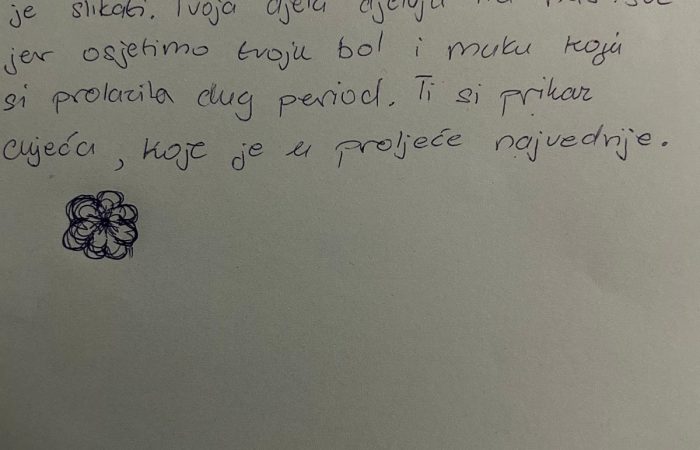 je slikati. Tvoja djela djeluju na nas
jer osjetimo tvoju bol i muku koju
si prolazila dug period. Ti si prikaz
cvijeća, koje je u proljeće najvednije.